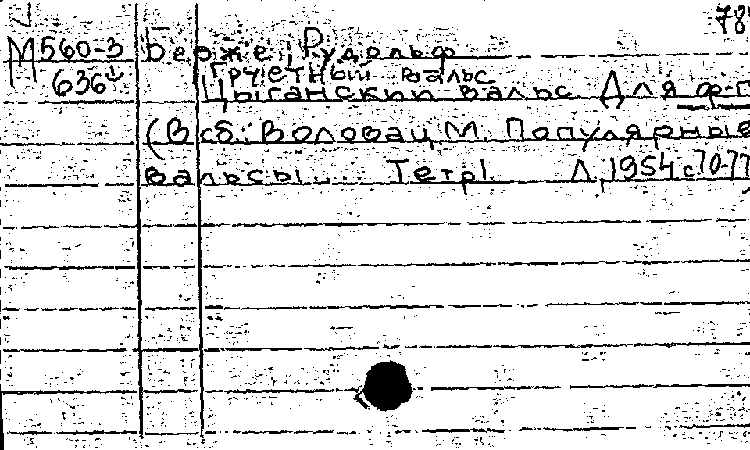 78
М 560-3 Берже, Рудольф
636 Грустный вальс
Цыганский вальс. Для ф-п
(В сб.: Воловац М. Популярные
вальсы.... Тетр1 Л, 1954 с70-77